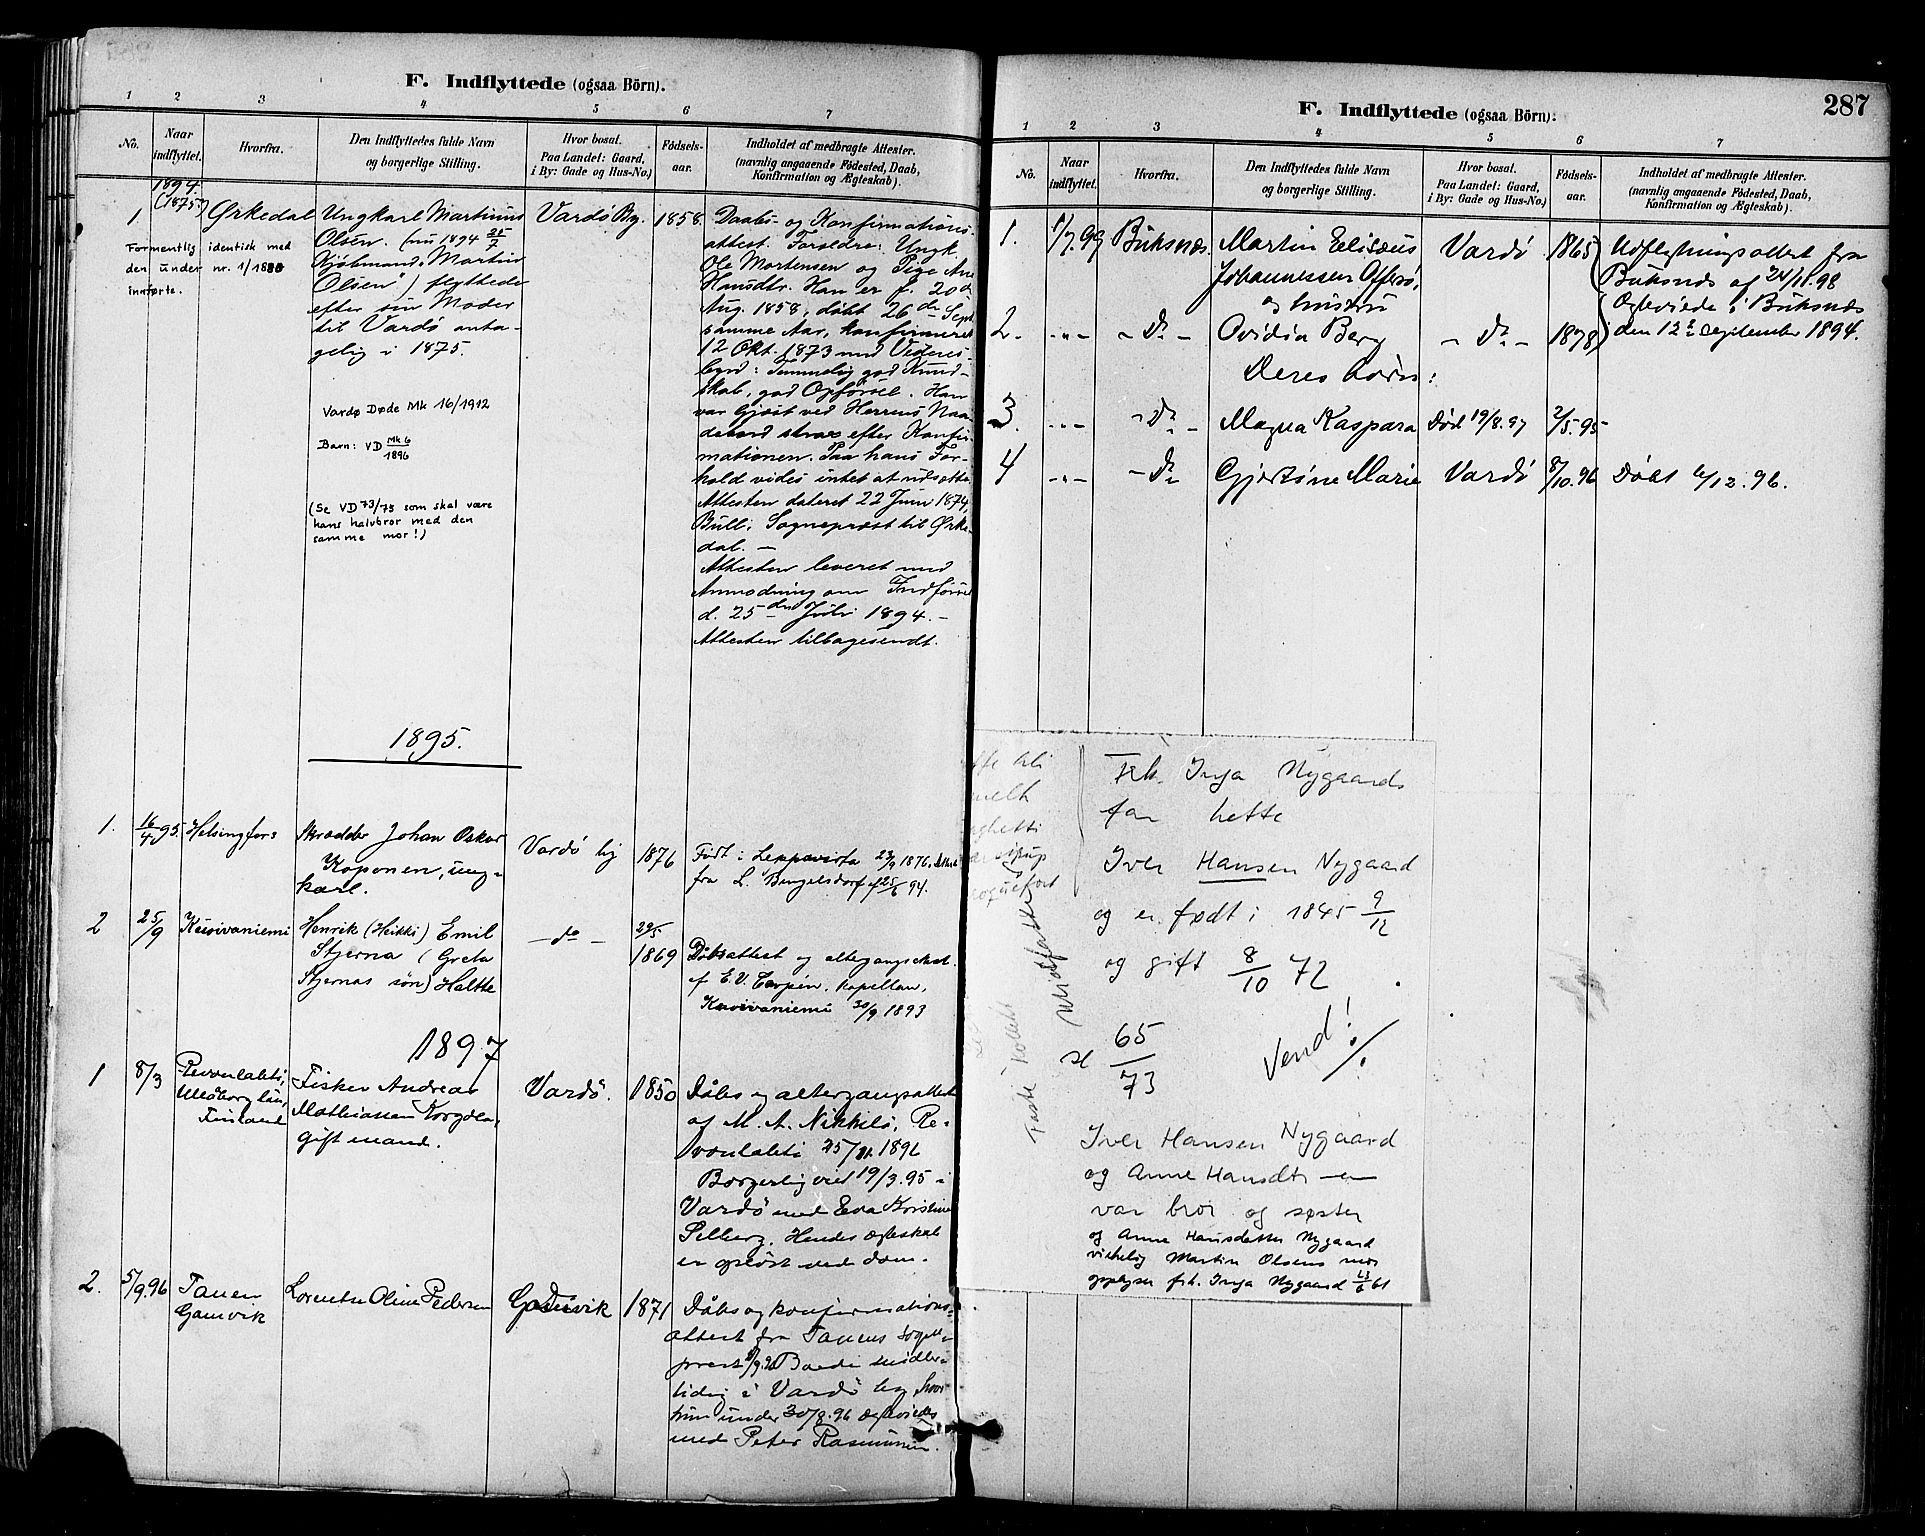 F. Indflyttede (ogsaa Börn).
1 2 3 4 5 6 7
No. Naar indflyttet. Hvorfra. Den Indflyttedes fulde Navn og borgerlige Stilling. Hvor bosat. Paa Landet: Gaard, i By: Gade og Hus-No.) Fødsels-aar. Indholdet af medbragte Attester. (navnlig angaaende Fødested, Daab, Konfirmation og Ægteskab).
1894.
(1875.)
1. Ørkedal Ungkarl Martinus Vardø By. 1858. Daabs- og Konfirmations-
Olsen. (nu 1894 25/7 attest. Forældre: Ungk.
Kjøbmand "Martin Ole Mortensen og Pige Ane
Olsen") flyttede Hansdtr. Han er f. 20de
efter sin Moder Aug. 1858, døbt 26de Sept.
til Vardø anta- samme Aar, konfirmeret
gelig i 1875. 12 Okt. 1873 med Vidnes-
byrd: Temmelig god Kund-
skab, god Opførsel. Han
var Gjæst ved Herrens Naa-
debord strax efter Konfir-
mationen. Paa hans For-
hold vides intet at udsætte.
Attesten dateret 22 Juni 1874,
Bull, Sognepræst til Ørke-
dal. —
Attesten leveret med
Anmodning om Indførsel
d. 25de Juli 1894. —
Attesten tilbagesendt.
Formentlig identisk med
den under nr. 1/1880
innførte.
Vardø Døde Mk 16/1912
Barn: VD Mk 6/1896
(Se VD 73/75 som skal være
hans halvbror med den
samme mor!)
1895.
1. 16/4 95. Helsingfors Skrædder Johan Oskar Vardø by 1876 Født i Leppävirta 23/9 1876. Attest
Koponen, ung- fra L. Bengelsdorf af 25/6 94.
karl.
2 25/9 Kuivaniemi Henrik (Heikki) Emil — do — 29/5
Stjerna (Greta 1869 Dåbsattest og altergangsattest
Stjernas søn) Haltte af E.V. Corpén, kapellan,
Kuivaniemi 30/9 1893
1897
1 8/3 Revonlahti, Fisker Andreas Vardö. 1850 Dåbs og altergangsattest
Uleåborg län, Mathiassen af M. A. Nikkilä, Re-
Finland gift mand. vonlahti 25/11 1896
Borgerlig viet 19/3.95 i
Vardö med Eva Kristine
Selberg. Hendes ægteskab
er opløst ved dom.
2. 5/9.96 Tanen Lorentse Oline Pedersen Gamvik 1871 Dåbs og konfirmations-
Gamvik attest fra Tanens sogne-
prest 5/9.96 Boede midler-
tidig i Vardö by hvor
hun under 30/8.96 ægteviedes
med Peter Rasmussen.
287
F. Indflyttede (ogsaa Börn):
1 2 3 4 5 6 7
No. Naar indflyttet. Hvorfra. Den Indflyttedes fulde Navn og borgerlige Stilling. Hvor bosat. Paa Landet: Gaard, i By: Gade og Hus-No.) Fødsels-aar. Indholdet af medbragte Attester. (navnlig angaaende Fødested, Daab, Konfirmation og Ægteskab).
1. 1/7.99 Buksnæs. Martin Elisæus Vardö 1865 Udflytningsattest fra
Johannessen Offersö, Buksnæs af 24/11.98
og hustru Ægteviede i Buksnæs
2. -"- - Do - Ovidia Berg - Do - 1878 den 12te September 1894.
Deres börn:
3. -"- - Do - Magna Kaspara Död 19/8.97 2/5.95
4 -"- - Do Gjertine Marie Vardö 8/10.96 Döbt 6/12.96.
Frk. Inga Nygaards
far hette
Iver Hansen Nygaard
og er født i 1845 9/12
og gift 8/10 72.
se 65/73 Vend! ./.
Iver Hansen Nygaard
og Anne Hansdtr
var bror og søster
og Anne Hansdatter Nygaard
virkelig Martin Olsens mor
opplyser frk. Inga Nygaard 23/6 61